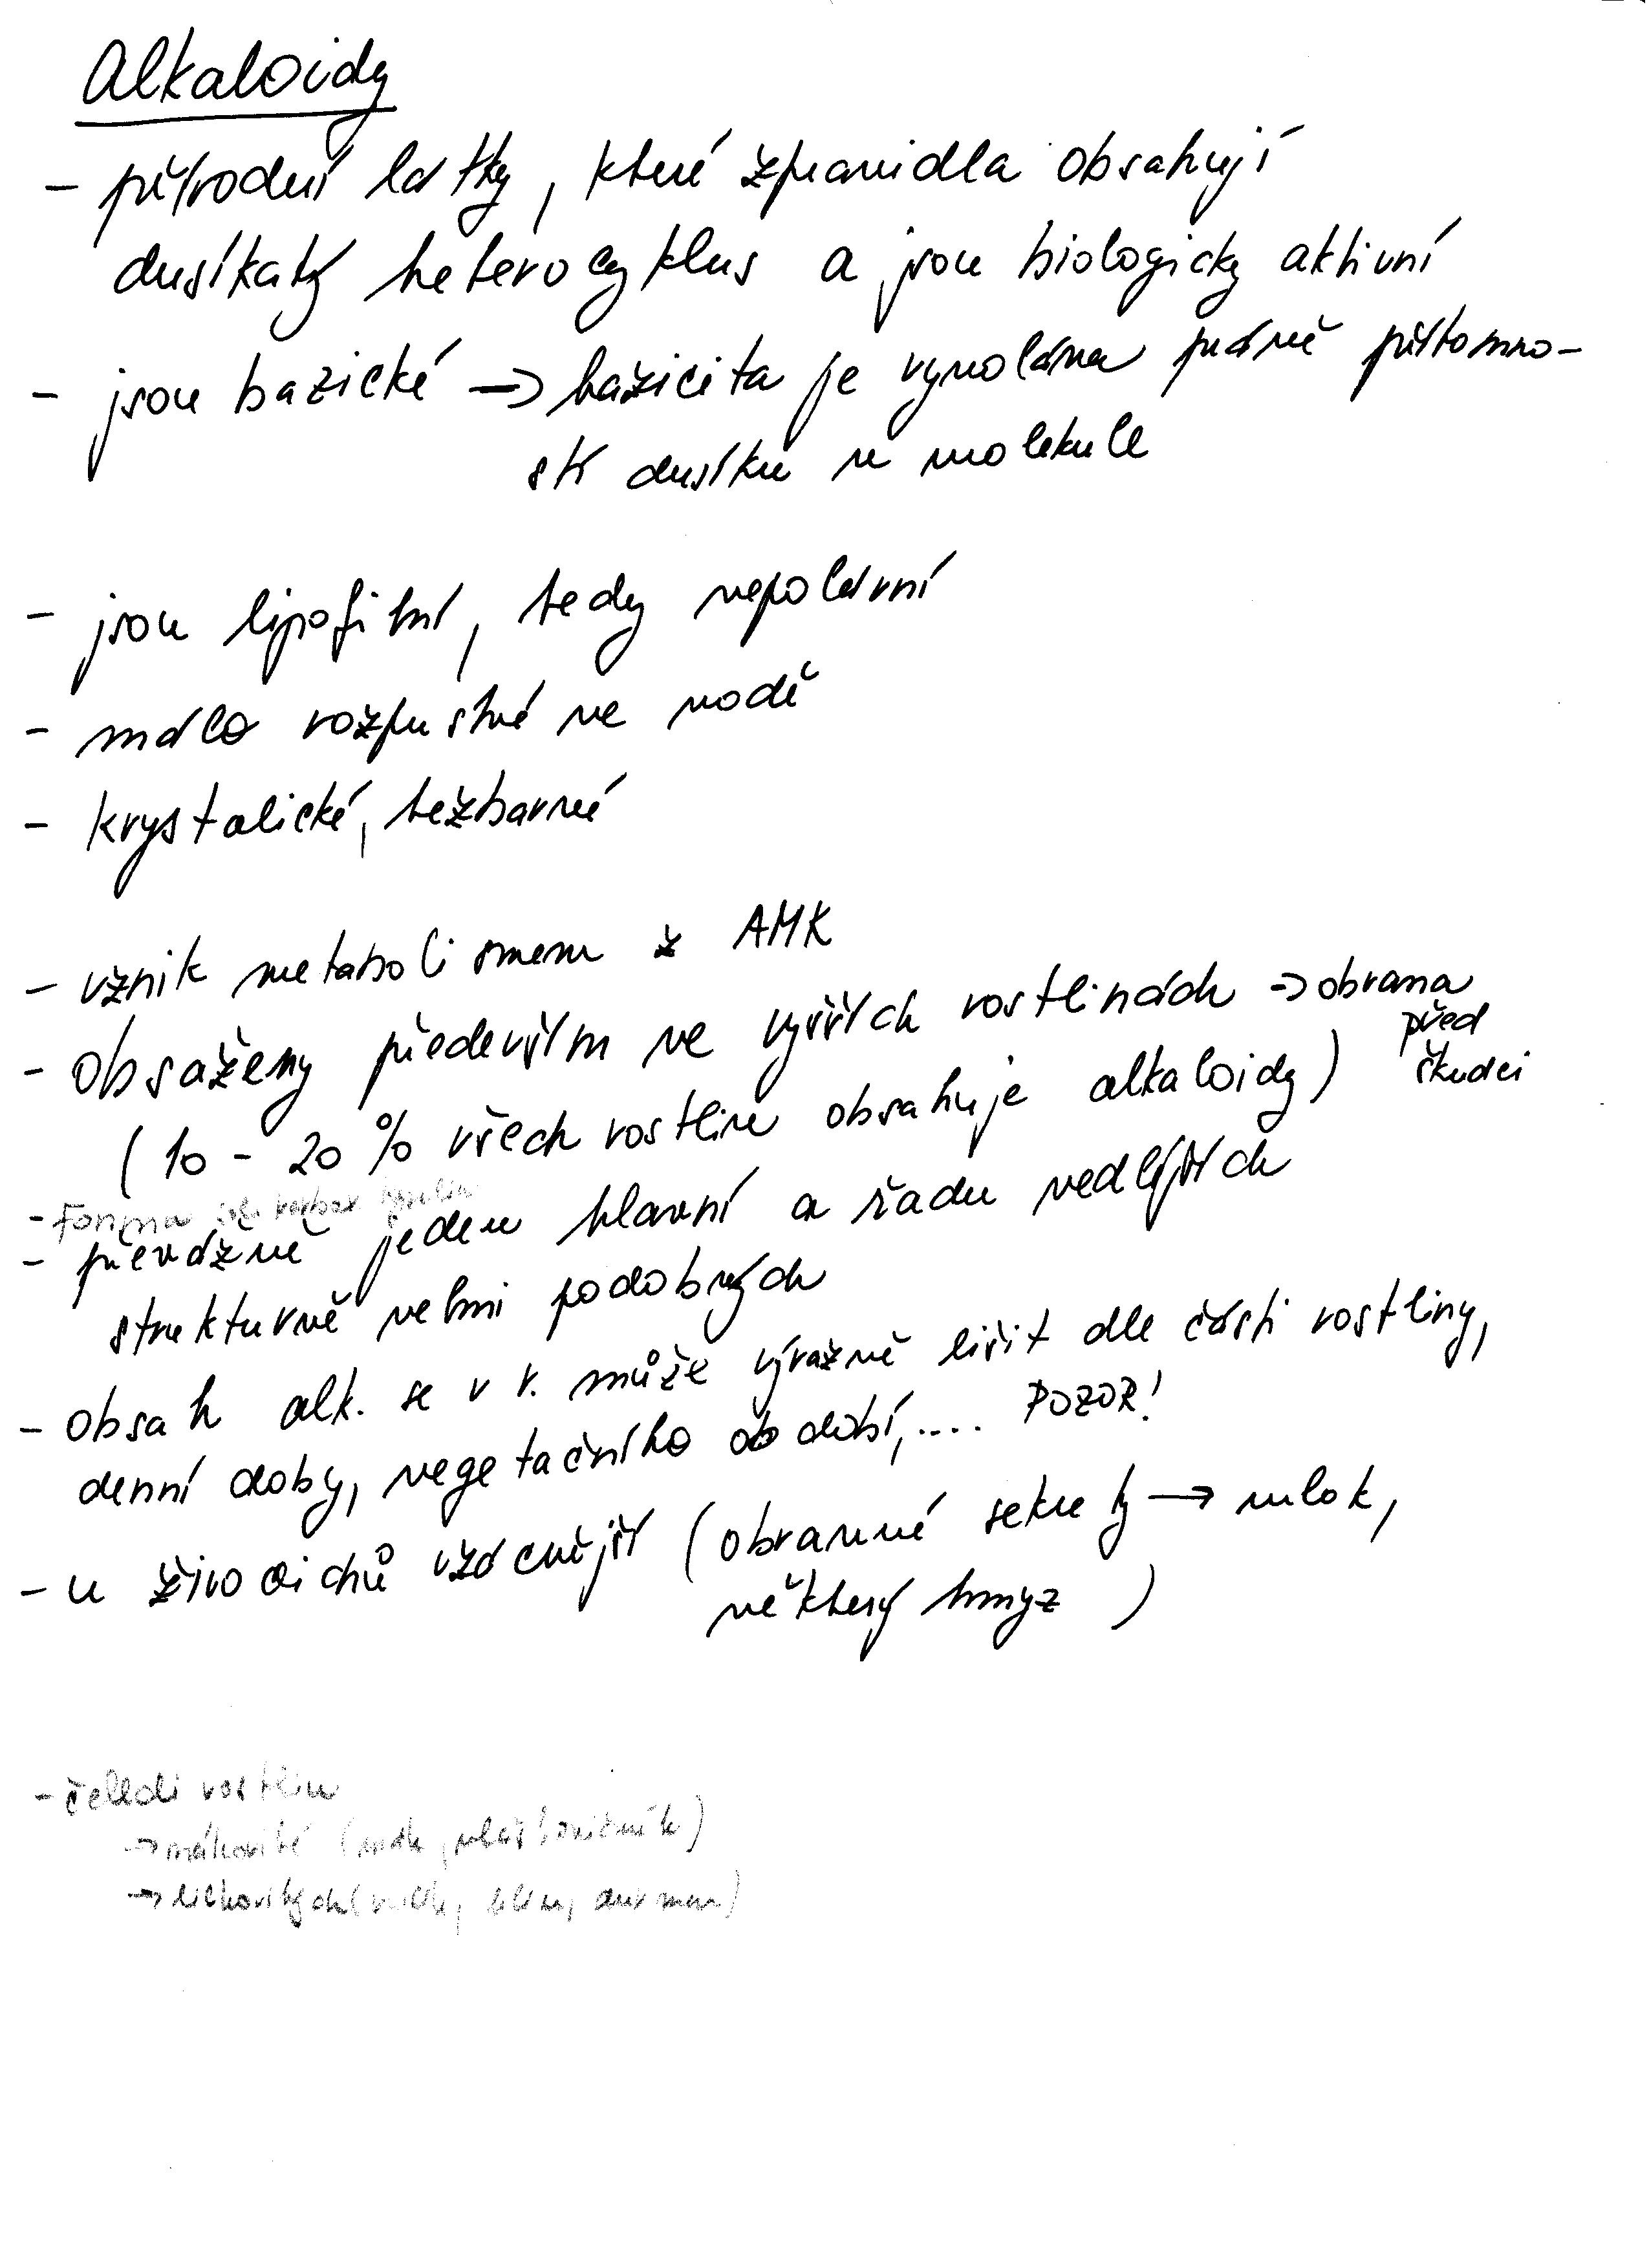 Alkaloidy
- přírodní látky, které zpravidla obsahují
dusíkatý heterocyklus a jsou biologicky aktivní
- jsou bazické → bazicita je vyvolána právě přítomno-
stí dusíku v molekule
- jsou lipofilní, tedy nepolární
- málo rozpustné ve vodě
- krystalické, bezbarvé
- vznik metabolismem z AMK
- obsaženy především ve vyšších rostlinách → obrana
před
škůdci
(10 - 20 % všech rostlin obsahuje alkaloidy)
- Forma
- převážně jeden hlavní a řadu vedlejších
strukturně velmi podobných
- obsah alk. se v r. může výrazně lišit dle části rostliny,
denní doby, vegetačního období,.... POZOR!
- u živočichů vzácnější (obranné sekrety → mlok,
některý hmyz)
- čeledi rostlin
→ mákovité (mák, vlaštovičník)
→ lilkovitých ( blín, durman)